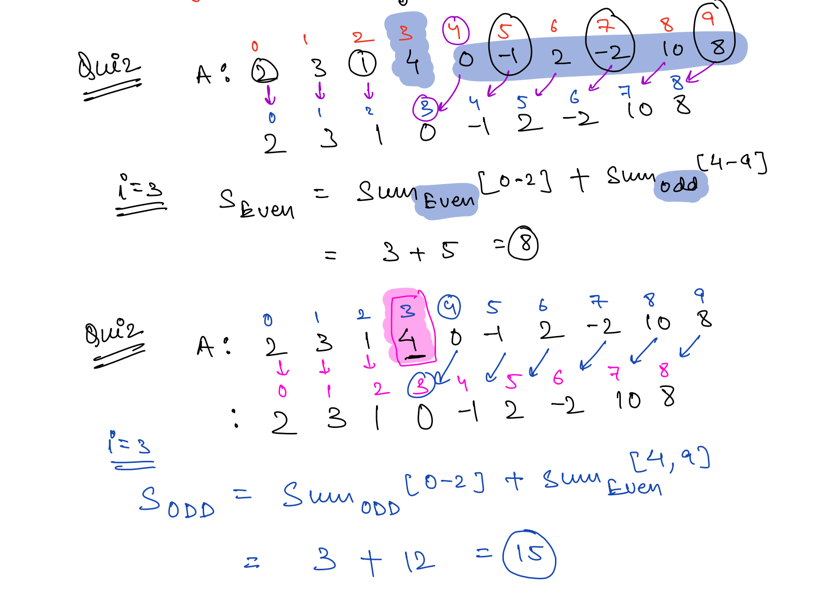 0 1 2 3 4 5 6 7 8 9
Quiz A: 2 3 1 4 0 -1 2 -2 10 8
0 1 2 3 4 5 6 7 8
2 3 1 0 -1 2 -2 10 8
i=3 S Even = Sum Even [0-2] + Sum odd [4-9]
= 3 + 5 = 8
0 1 2 3 4 5 6 7 8 9
Quiz A: 2 3 1 4 0 -1 2 -2 10 8
0 1 2 3 4 5 6 7 8
: 2 3 1 0 -1 2 -2 10 8
i=3
S ODD = Sum ODD [0-2] + Sum Even [4,9]
= 3 + 12 = 15